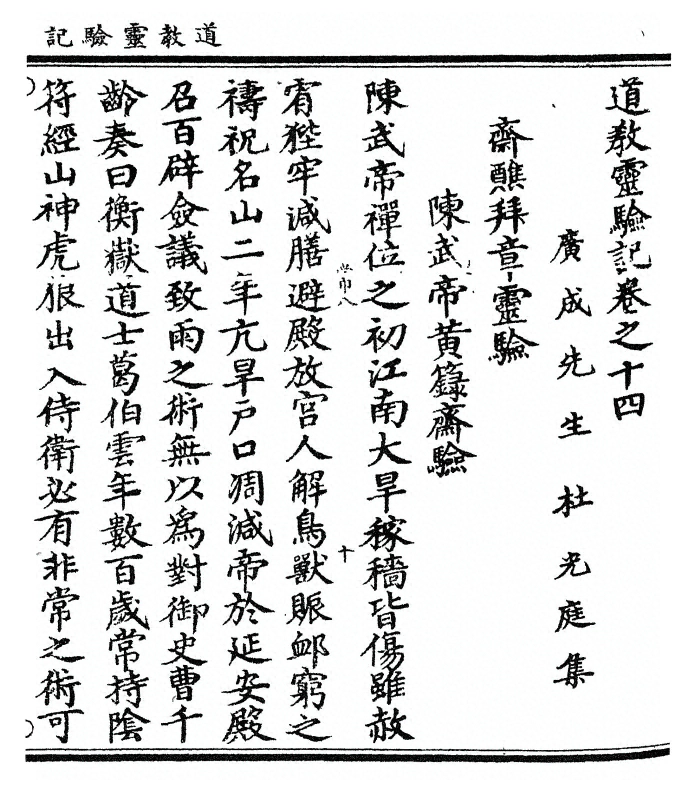 道教靈驗記
道教靈驗記卷之十四
廣成先生杜光庭集
齋醮拜章靈驗
陳武帝黄籙齋驗
陳武帝禪位之初江南大旱稼穡皆傷雖赦
宥狴牢減膳避殿放宫人解鳥獸賑卹窮乏
禱祝名山二年亢旱戸口凋減帝於延安殿
召百辟僉議致雨之術無以爲對御史曹千
齡奏曰衡嶽道士葛伯雲年數百歲常持陰
符經山神虎狼出入侍衛必有非常之術可